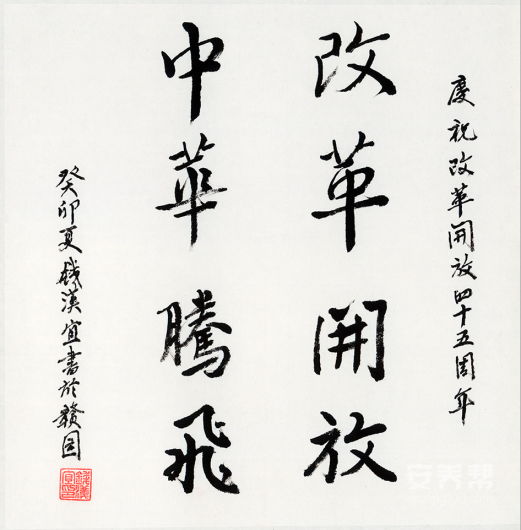 慶祝改革開放四十五周年
改革開放
中華騰飛
癸卯夏錢漢宜書於贛園
安养帮